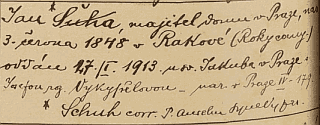 Jan Šuha, majitel domu v Praze, nar.
3. června 1848 v Rakové (Rokycany)
oddán 27/I. 1913 u sv. Jakuba v Praze s
Josefou Vykyřelovou nar. v Praze II - 179
* Schuh corr. P. Anselm